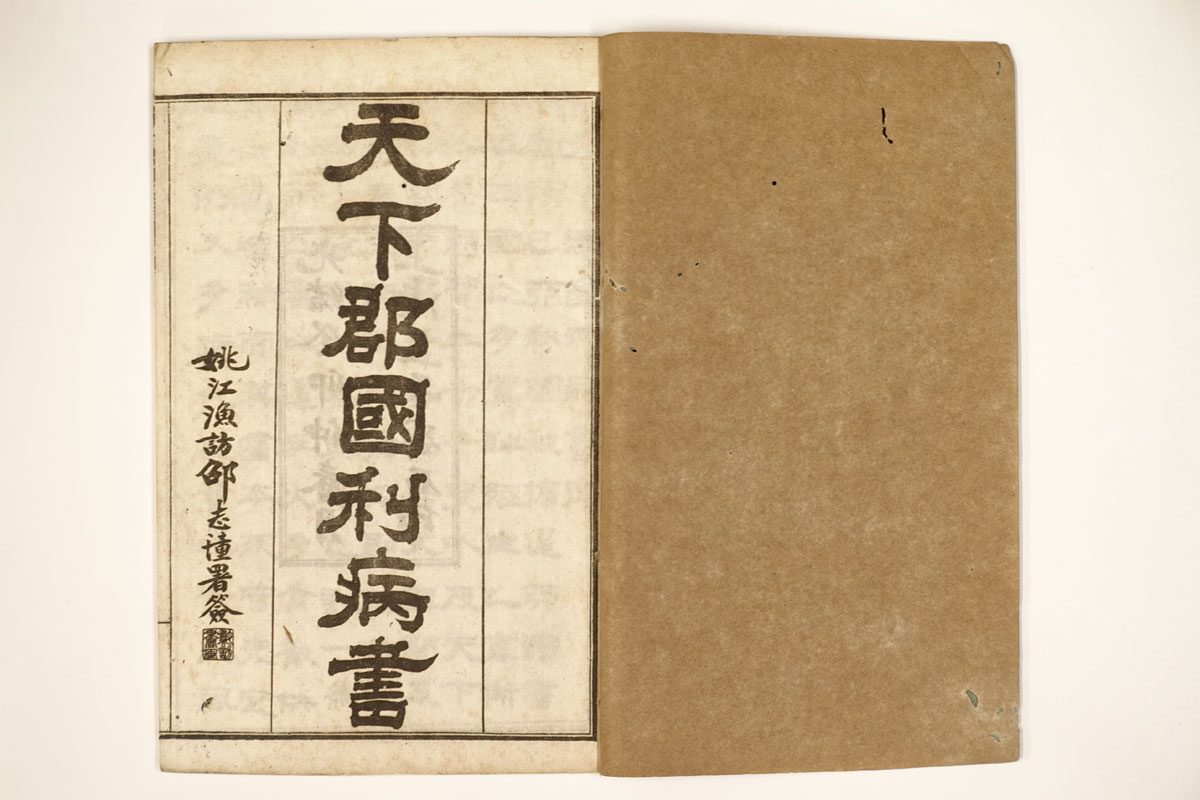 天下郡國利病書
姚江漁訪邵志潼署簽